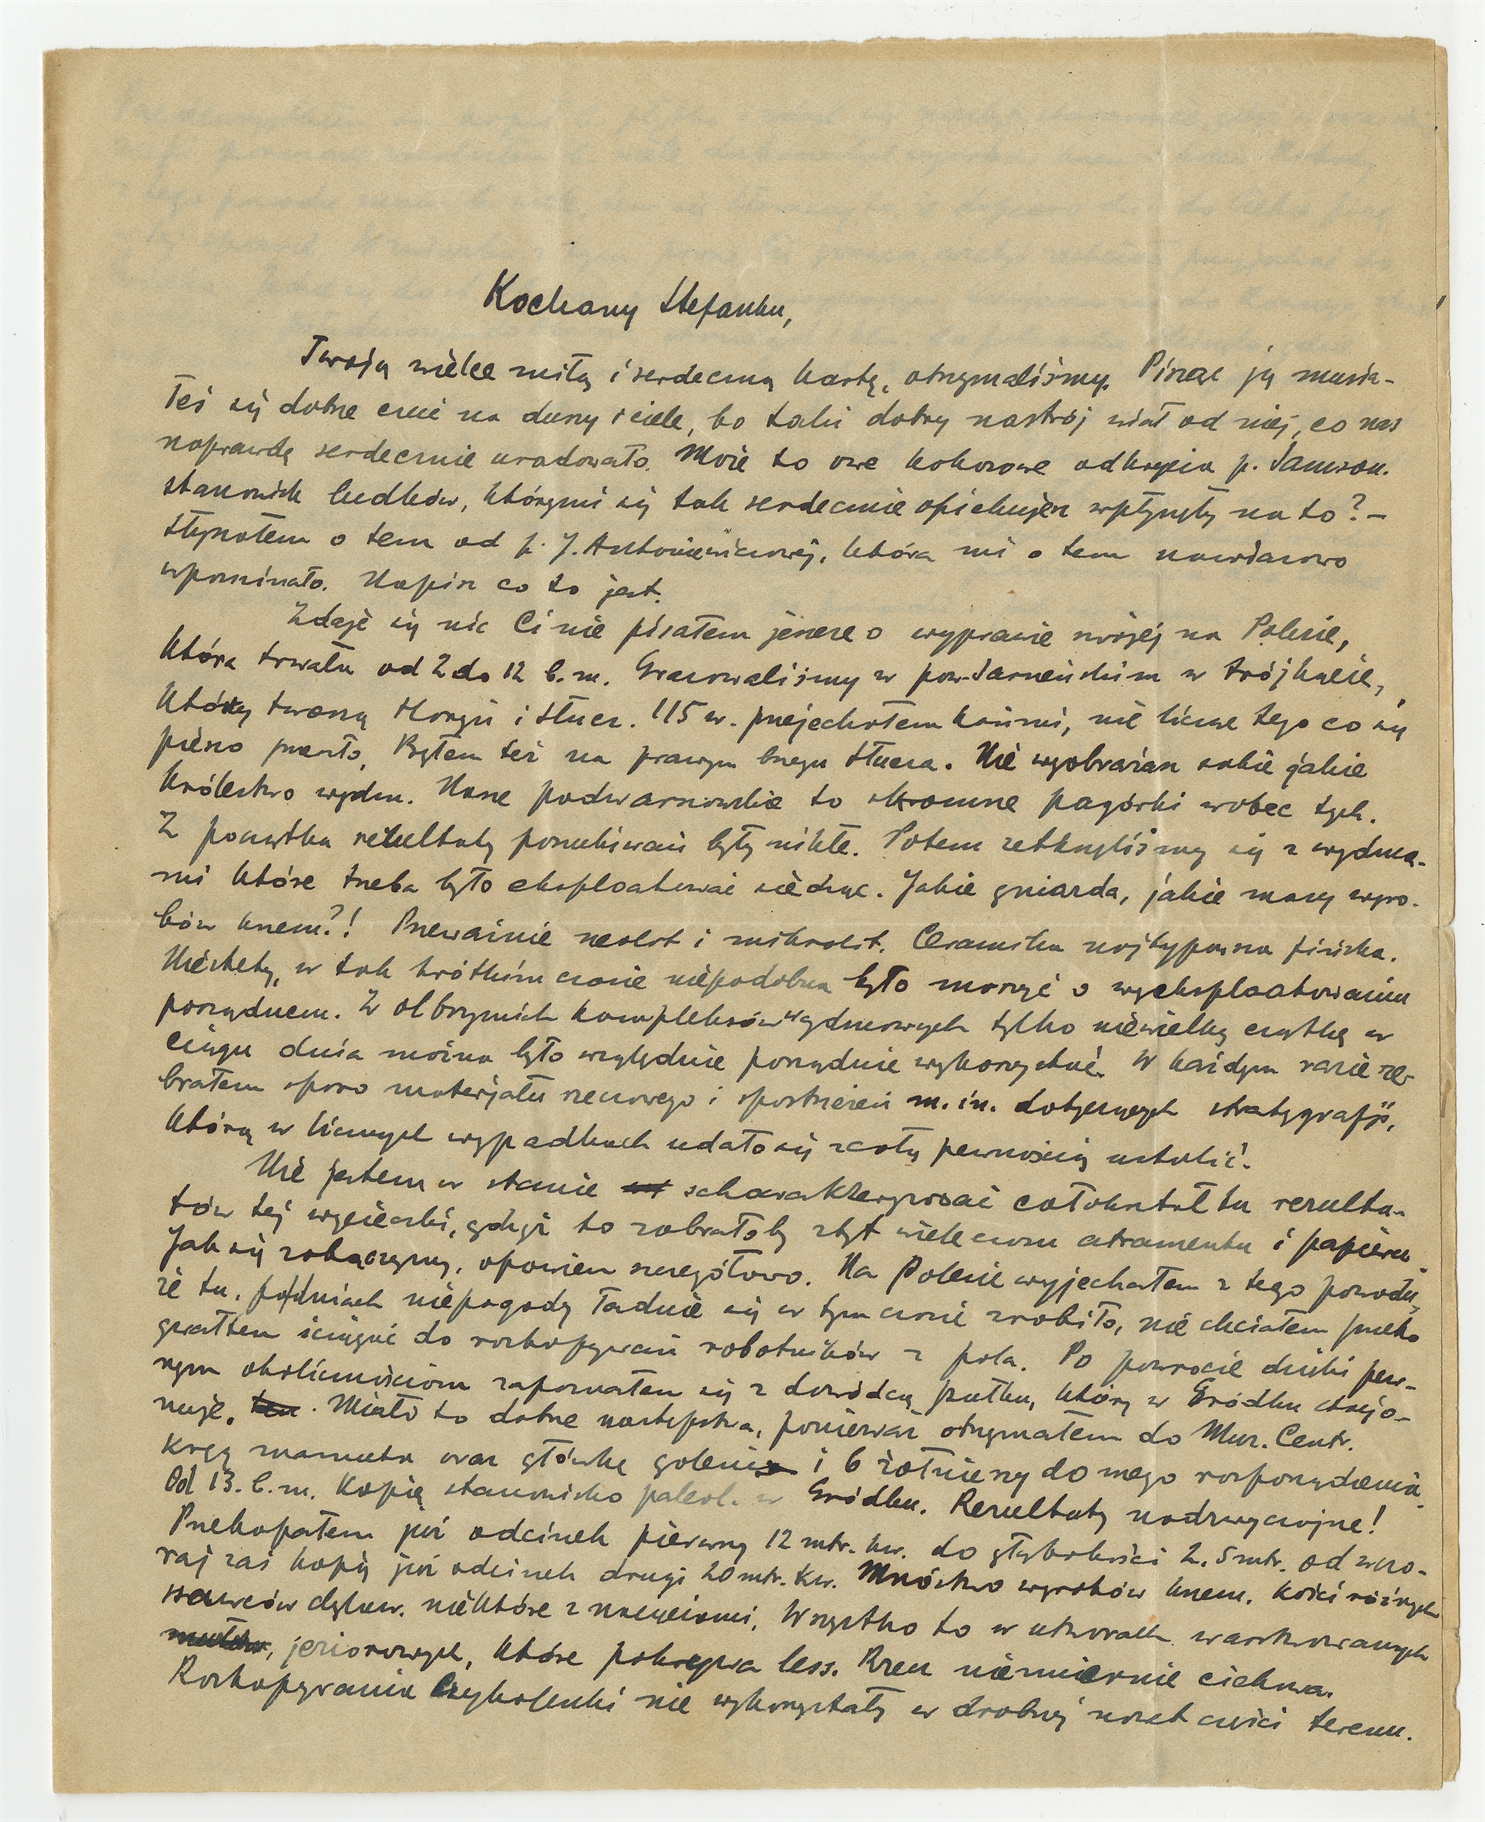 Kochany Stefanku,
Twoją wielce miłą i serdeczną kartę, otrzymaliśmy. Pisząc ją musia-
łeś się dobrze czuć na duszy i ciele, bo taki dobry nastrój wiał od niej, co nas
naprawdę serdecznie uradowało. Może to owe kokosowe odkrycia p. Samson.
stanowisk ludków, którymi się tak serdecznie opiekujesz wpłynęły na to? –
Słyszałem o tem od p. J. Antoniewiczowej, która mi o tem nawiasowo
wpominała. Napisz co to jest.
Zdaje się nic Ci nie pisałem jeszcze o wyprawie swojej na Polesie,
która trwała od 2 do 12 b.m. Grasowaliśmy w pow. Sarneńskim w trójkącie,
który tworzą Horyń i Słucz. 115 w. przejechałem końmi, nie licząc tego co się
pieszo przeszło. Byłem też na prawym brzegu Słucza. Nie wyobrażasz sobie jakie
królestwo wydm. Nasze podwarszawskie to skromne pagórki wobec tych.
Z początku rezultaty poszukiwań były nikłe. Potem zetknęliśmy się z wydma-
mi które trzeba było eksploatować siedząc. Jakie gniazda, jakie masy wyro-
bów krzem.?! Przeważnie neolit i mikrolit. Ceramika najtypowsza fińska.
Niestety, w tak krótkim czasie niepodobna było marzyć o wyeksploatowaniu
porządnem. Z olbrzymich kompleksów wydmowych tylko niewielką cząstkę w
ciągu dnia można było względnie porządnie wykorzystać. W każdym razie ze-
brałem sporo materjału rzeczowego i spostrzeżeń m. in. dotyczących stratygrafji,
którą w licznych wypadkach udało się z całą pewnością ustalić.
Nie jestem w stanie scharakteryzować całokształtu rezulta-
tów tej wycieczki, gdyż to zabrałoby zbyt wiele czasu atramentu i papieru.
Jak się zobaczymy, opowiem szczegółowo. Na Polesie wyjechałem z tego powodu,
że tu, po dniach niepogody ładnie się w tym czasie zrobiło, nie chciałem przeto
gwałtem ściągać do rozkopywań robotników z pola. Po powrocie dzięki pew-
nym okolicznościom zapoznałem się z dowódcą pułku, który w Gródku stacjo-
nuje. Miało to dobre następstwa, ponieważ otrzymałem do Muz. Centr.
kręg mamuta oraz główkę goleni i 6 żołnierzy do mego rozporządzenia.
Od 13. b.m. kopię stanowisko paleol. w Gródku. Rezultaty nadzwyczajne!
Przekopałem już odcinek pierwszy 12 mtr. kw. do głębokości 2.5 mtr. od wczo-
raj zaś kopię już odcinek drugi 20 mtr. kw. Mnóstwo wyrobów krzem. kości różnych
ssawców dyluw. niektóre z nacięciami. Wszystko to w utworach warstwowanych
jeziorowych, które pokrywa less. Rzecz niezmiernie ciekawa.
Rozkopywania nie wykorzystały w drobnej nawet części terenu.